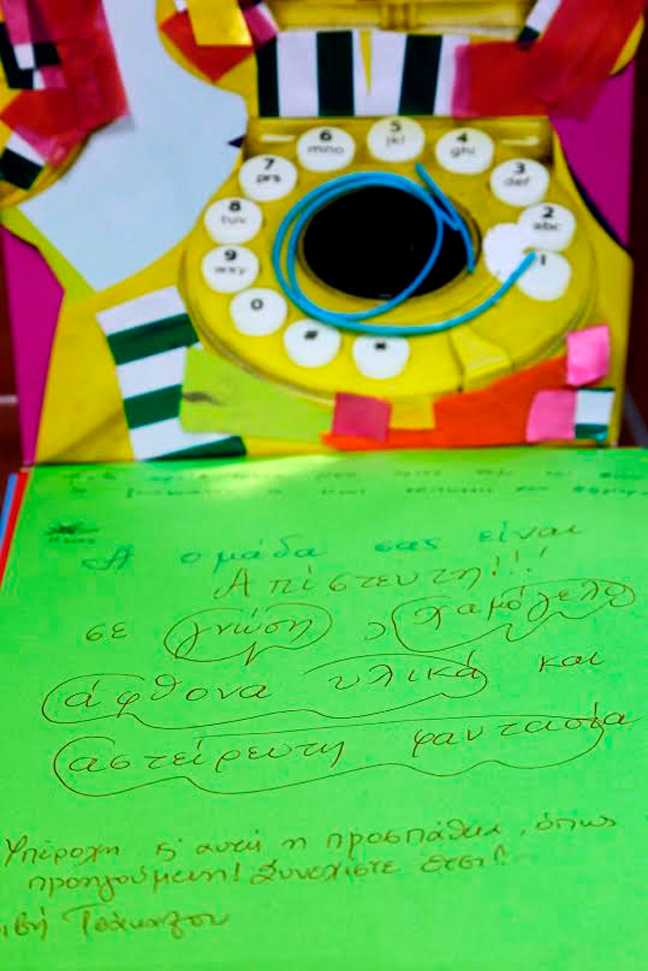 5
jkl
6
mno
4
ghi
7
prs
3
def
8
tuv
2
abc
9
wxy
1
0
#
*
Η ομάδα σας είναι
Απίστευτη!!!
σε γνώση, χαμόγελο
άφθονα υλικά και
αστείρευτη φαντασία
Υπέροχη κι αυτή η προσπάθεια, όπως
προηγούμενη! Συνεχίστε έτσι!